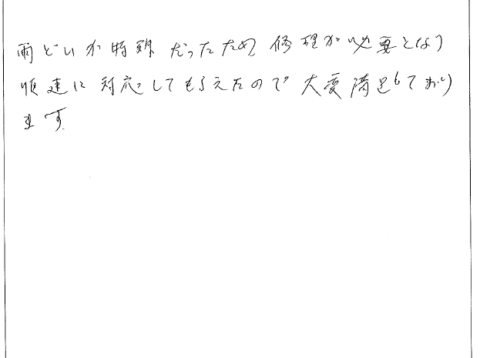 雨どいが特殊だったため修理が必要となり
迅速に対応してもらえたので大変満足しており
ます